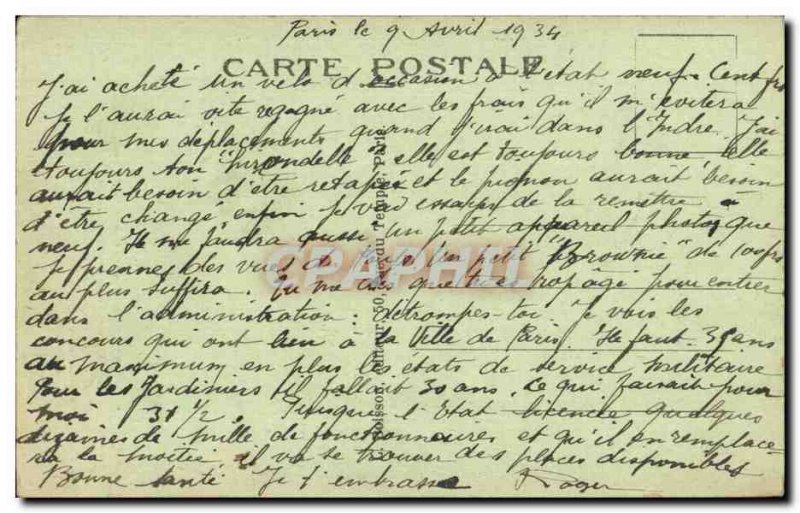 Paris le 9 Avril 1934
CARTE POSTALE
J'ai acheté un velo d'occasion à l'état neuf. Cent frs
Je l'aurai vite regagné avec les frais qu'il m'évitera
pour mes déplacements quand j'irai dans l'Indre. J'ai
toujours ton "hirondelle" elle est toujours bonne elle
aurait besoin d'être retapée et le pignon aurait besoin
d'être changé enfin je vais essayer de la remettre à
neuf. Il me faudra aussi un petit appareil photo que
je prenne des vues de un petit "Brownie" de 100frs
au plus suffira. Tu me dis que tu as trop agé pour entrer
dans l'administration : détrompes-toi. Je vois les
concours qui ont lieu à la Ville de Paris. Il faut 35 ans
au maximum en plus les états de service militaire
Pour les Jardiniers il fallait 30 ans, ce qui faisait pour
moi 31 1/2. Puisque l'Etat licencie quelques
dizaines de mille de fonctionnaires et qu'il en remplace-
ra la moitié il va se trouver des places disponibles
Bonne santé Je t'embrasse Roger
CPAPHIL